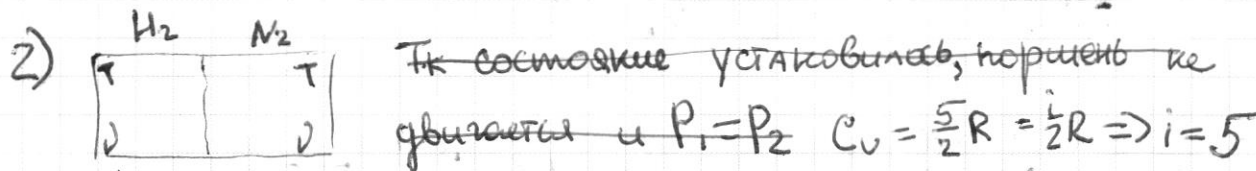 2) H₂ N₂
T T Тк состояние установилось, поршень не
ν ν двигается и P₁=P₂ Cᵥ = 5/2 R = i/2 R => i = 5